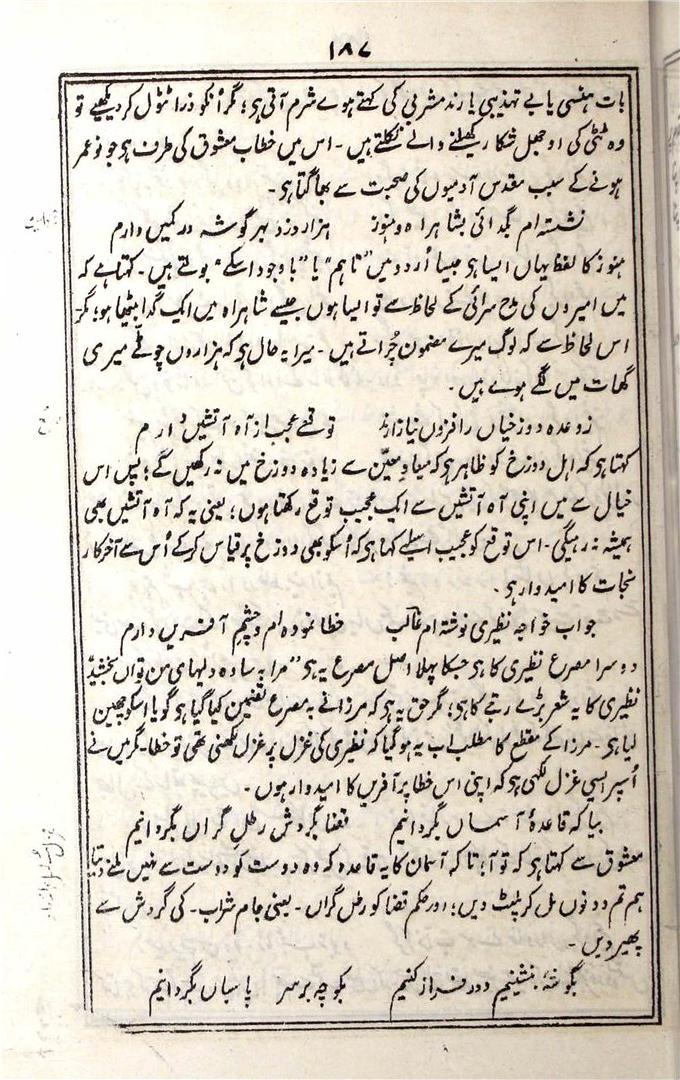 ۱۸۷
بات ہنسی یا بے تہذیبی یا رند مشربی کی کہتے ہوے شرم آتی ہی؛ مگر اُنکو ذرا ٹٹول کر دیکھیے تو
وہ ٹٹی کی اوجھل شکار کھیلنے والے نکلتے ہیں۔ اس میں خطاب معشوق کی طرف ہی جو نو عمر
ہونے کے سبب مقدس آدمیوں کی صحبت سے بھاگتا ہی۔
نشستہ ام بگدائی بشاہراہ و ہنوز ہزار دزد بہر گوشہ در کمیں دارم
ہنوز کا لفظ یہاں ایسا ہی جیسا اُردو میں "تاہم" یا "باوجود اسکے" بولتے ہیں۔ کہتا ہے کہ
میں امیروں کی مدح سرائی کے لحاظ سے تو ایسا ہوں جیسے شاہراہ میں ایک گدا بیٹھا ہو؛ مگر
اس لحاظ سے کہ لوگ میرے مضمون چُراتے ہیں۔ میرا یہ حال ہی کہ ہزاروں چوٹٹے میری
گھات میں لگے ہوے ہیں۔
ز وعدہ دوزخیاں را فزوں نیازارند توقعے عجب از آہ آتشیں دارم
کہتا ہی کہ اہل دوزخ کو ظاہر ہی کہ میعاد معیّن سے زیادہ دوزخ میں نہ رکھیں گے؛ پس اس
خیال سے میں اپنی آہ آتشیں سے ایک عجیب توقع رکھتا ہوں؛ یعنی یہ کہ آہ آتشیں بھی
ہمیشہ نہ رہیگی۔ اس توقع کو عجیب اسلیے کہا ہی کہ اُسکو بھی دوزخ پر قیاس کر کے اُس سے آخر کار
نجات کا امیدوار ہی۔
جواب خواجہ نظیری نوشتہ ام غالب خطا نمودہ ام و چشمِ آفریں دارم
دوسرا مصرع نظیری کا ہی جسکا پہلا اصل مصرع یہ ہی "مرا بہ سادہ دلیہای من تواں بخشید"
نظیری کا یہ شعر بڑے رتبے کا ہی؛ مگر حق یہ ہی کہ مرزا نے یہ مصرع تضمین کیا گیا ہی گویا اسکو چھین
لیا ہی۔ مرزا کے مقطع کا مطلب اب یہ ہو گیا کہ نظیری کی غزل پر غزل لکھنی تھی تو خطا۔ مگر میں نے
اُسپر ایسی غزل لکھی ہی کہ اپنی اس خطا پر آفریں کا امیدوار ہوں۔
بیا کہ قاعدۂ آسماں بگردانیم قضا بگردش رطل گراں بگردانیم
معشوق سے کہتا ہی کہ تو آ؛ تاکہ آسمان کا یہ قاعدہ کہ وہ دوست کو دوست سے نہیں ملنے دیتا
ہم تم دونوں مل کر پلٹ دیں؛ اور حکم قضا کو رطل گراں۔ یعنی جام شراب۔ کی گردش سے
پھیر دیں۔
بگوشۂ بنشینیم و در فراز کنیم بکوچہ بر سر پاسباں بگردانیم